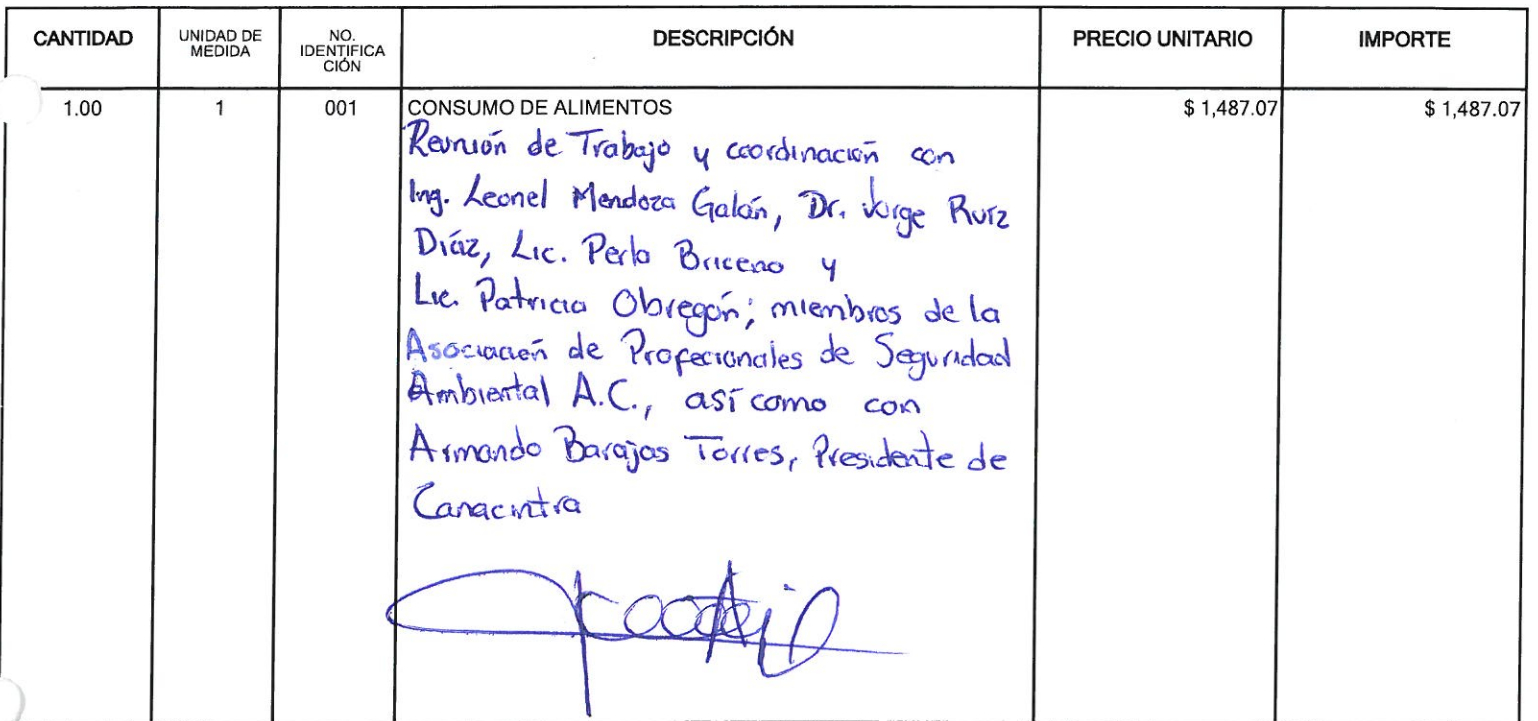 CANTIDAD UNIDAD DE MEDIDA NO. IDENTIFICA CIÓN DESCRIPCIÓN PRECIO UNITARIO IMPORTE
1.00 1 001 CONSUMO DE ALIMENTOS $ 1,487.07 $ 1,487.07
Reunión de Trabajo y coordinación con
Ing. Leonel Mendoza Galán, Dr. Jorge Ruiz
Díaz, Lic. Perla Briceno y
Lic. Patricia Obregón; miembros de la
Asociación de Profecionales de Seguridad
Ambiental A.C., así como con
Armando Barajas Torres, Presidente de
Canacintra